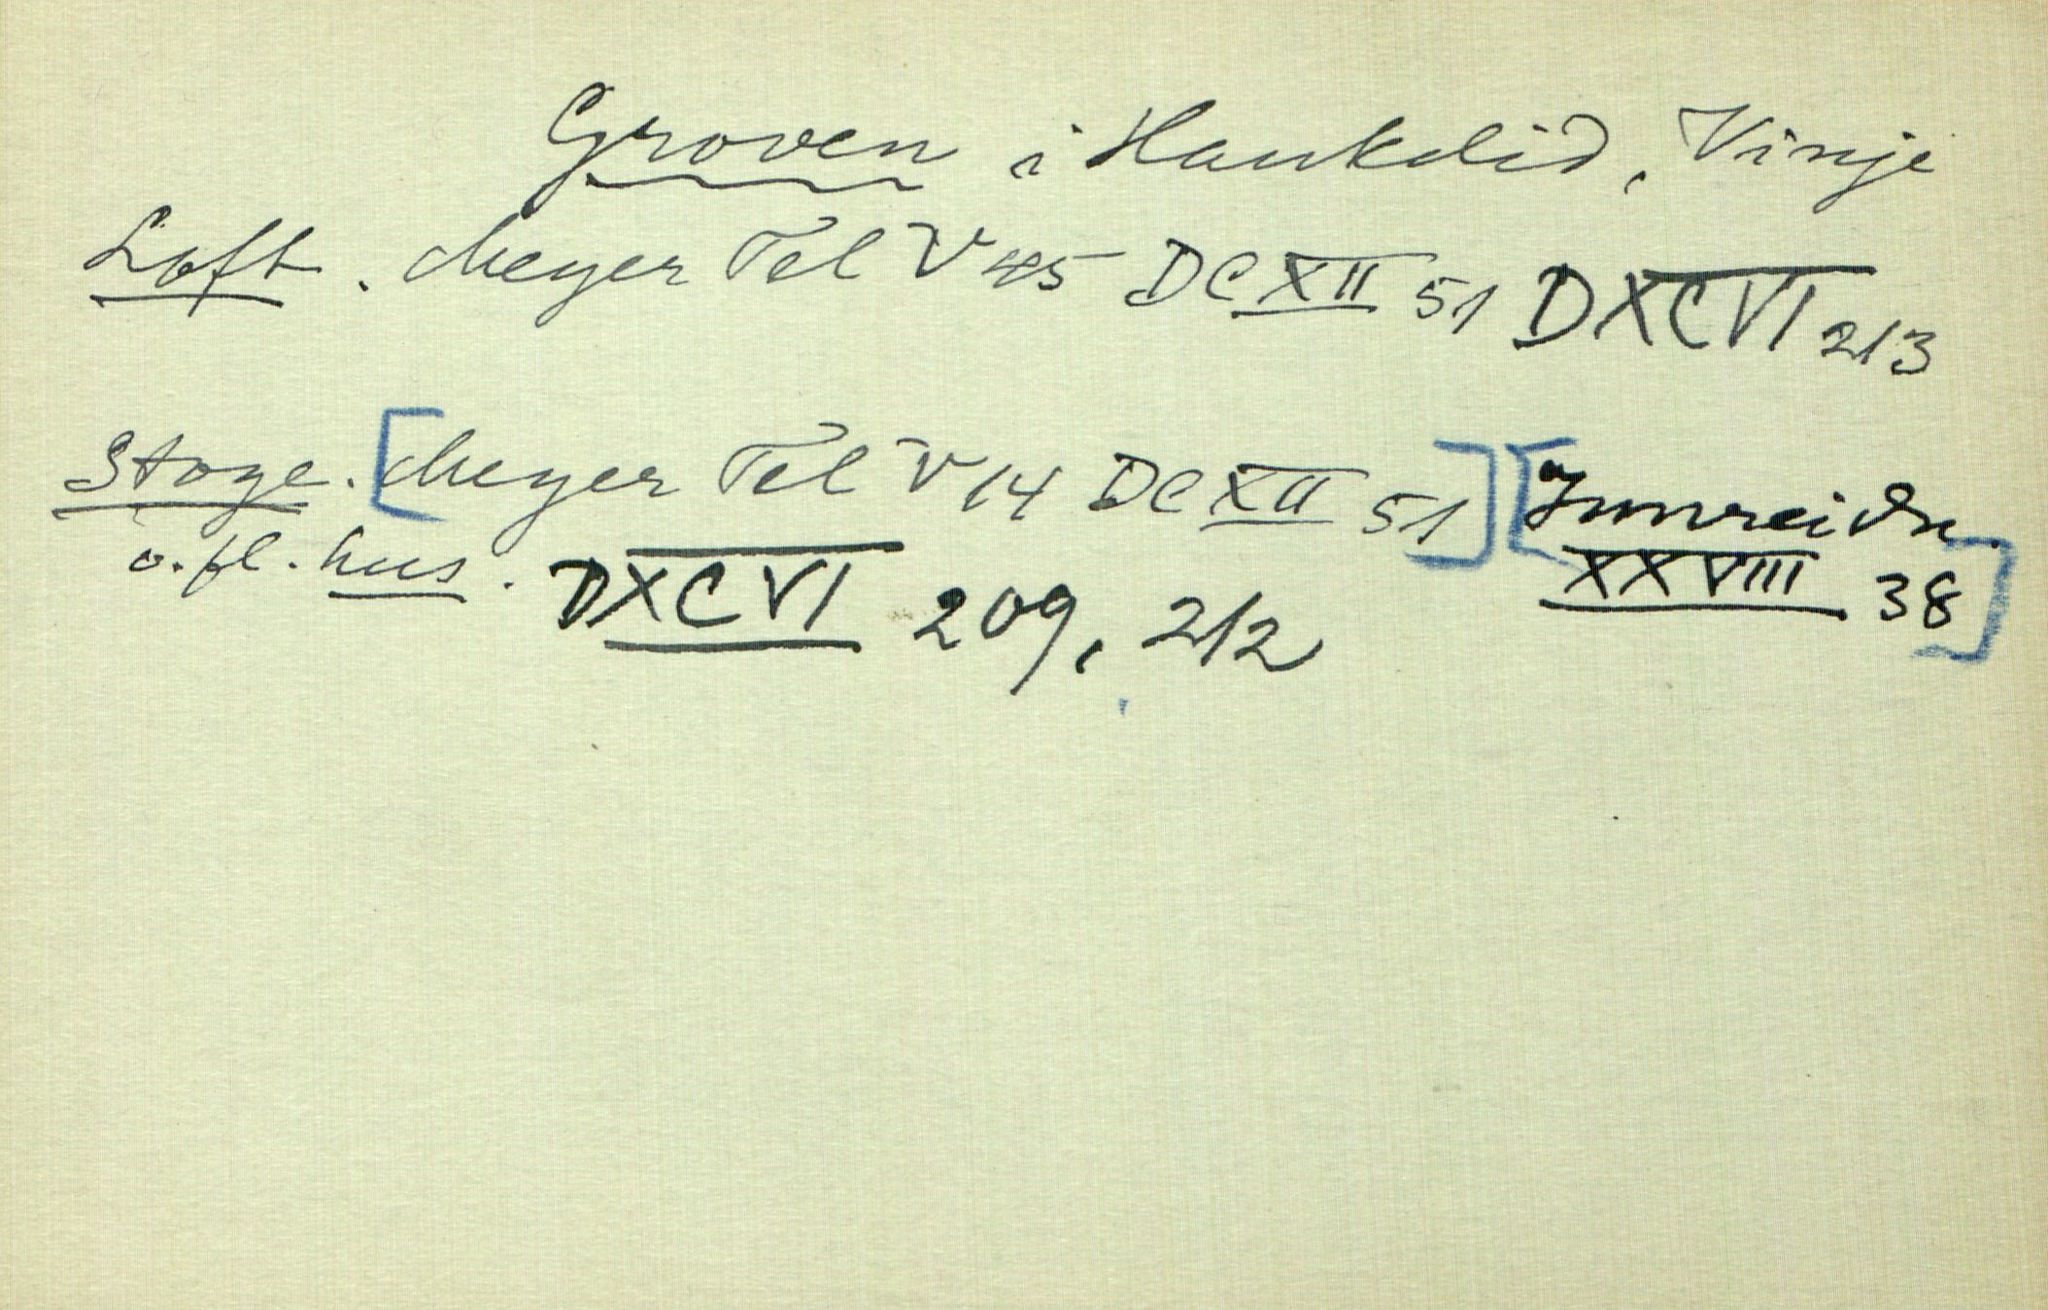 Groven i Haukelid, Vinje
Loft. Meyer Tel V 45 DCXII 51 DXCVI 213
Stoge. [Meyer Tel V 14 DCXII 51] [Innreidn.
o. fl. hus. DXCVI 209, 212 XXVIII 38]